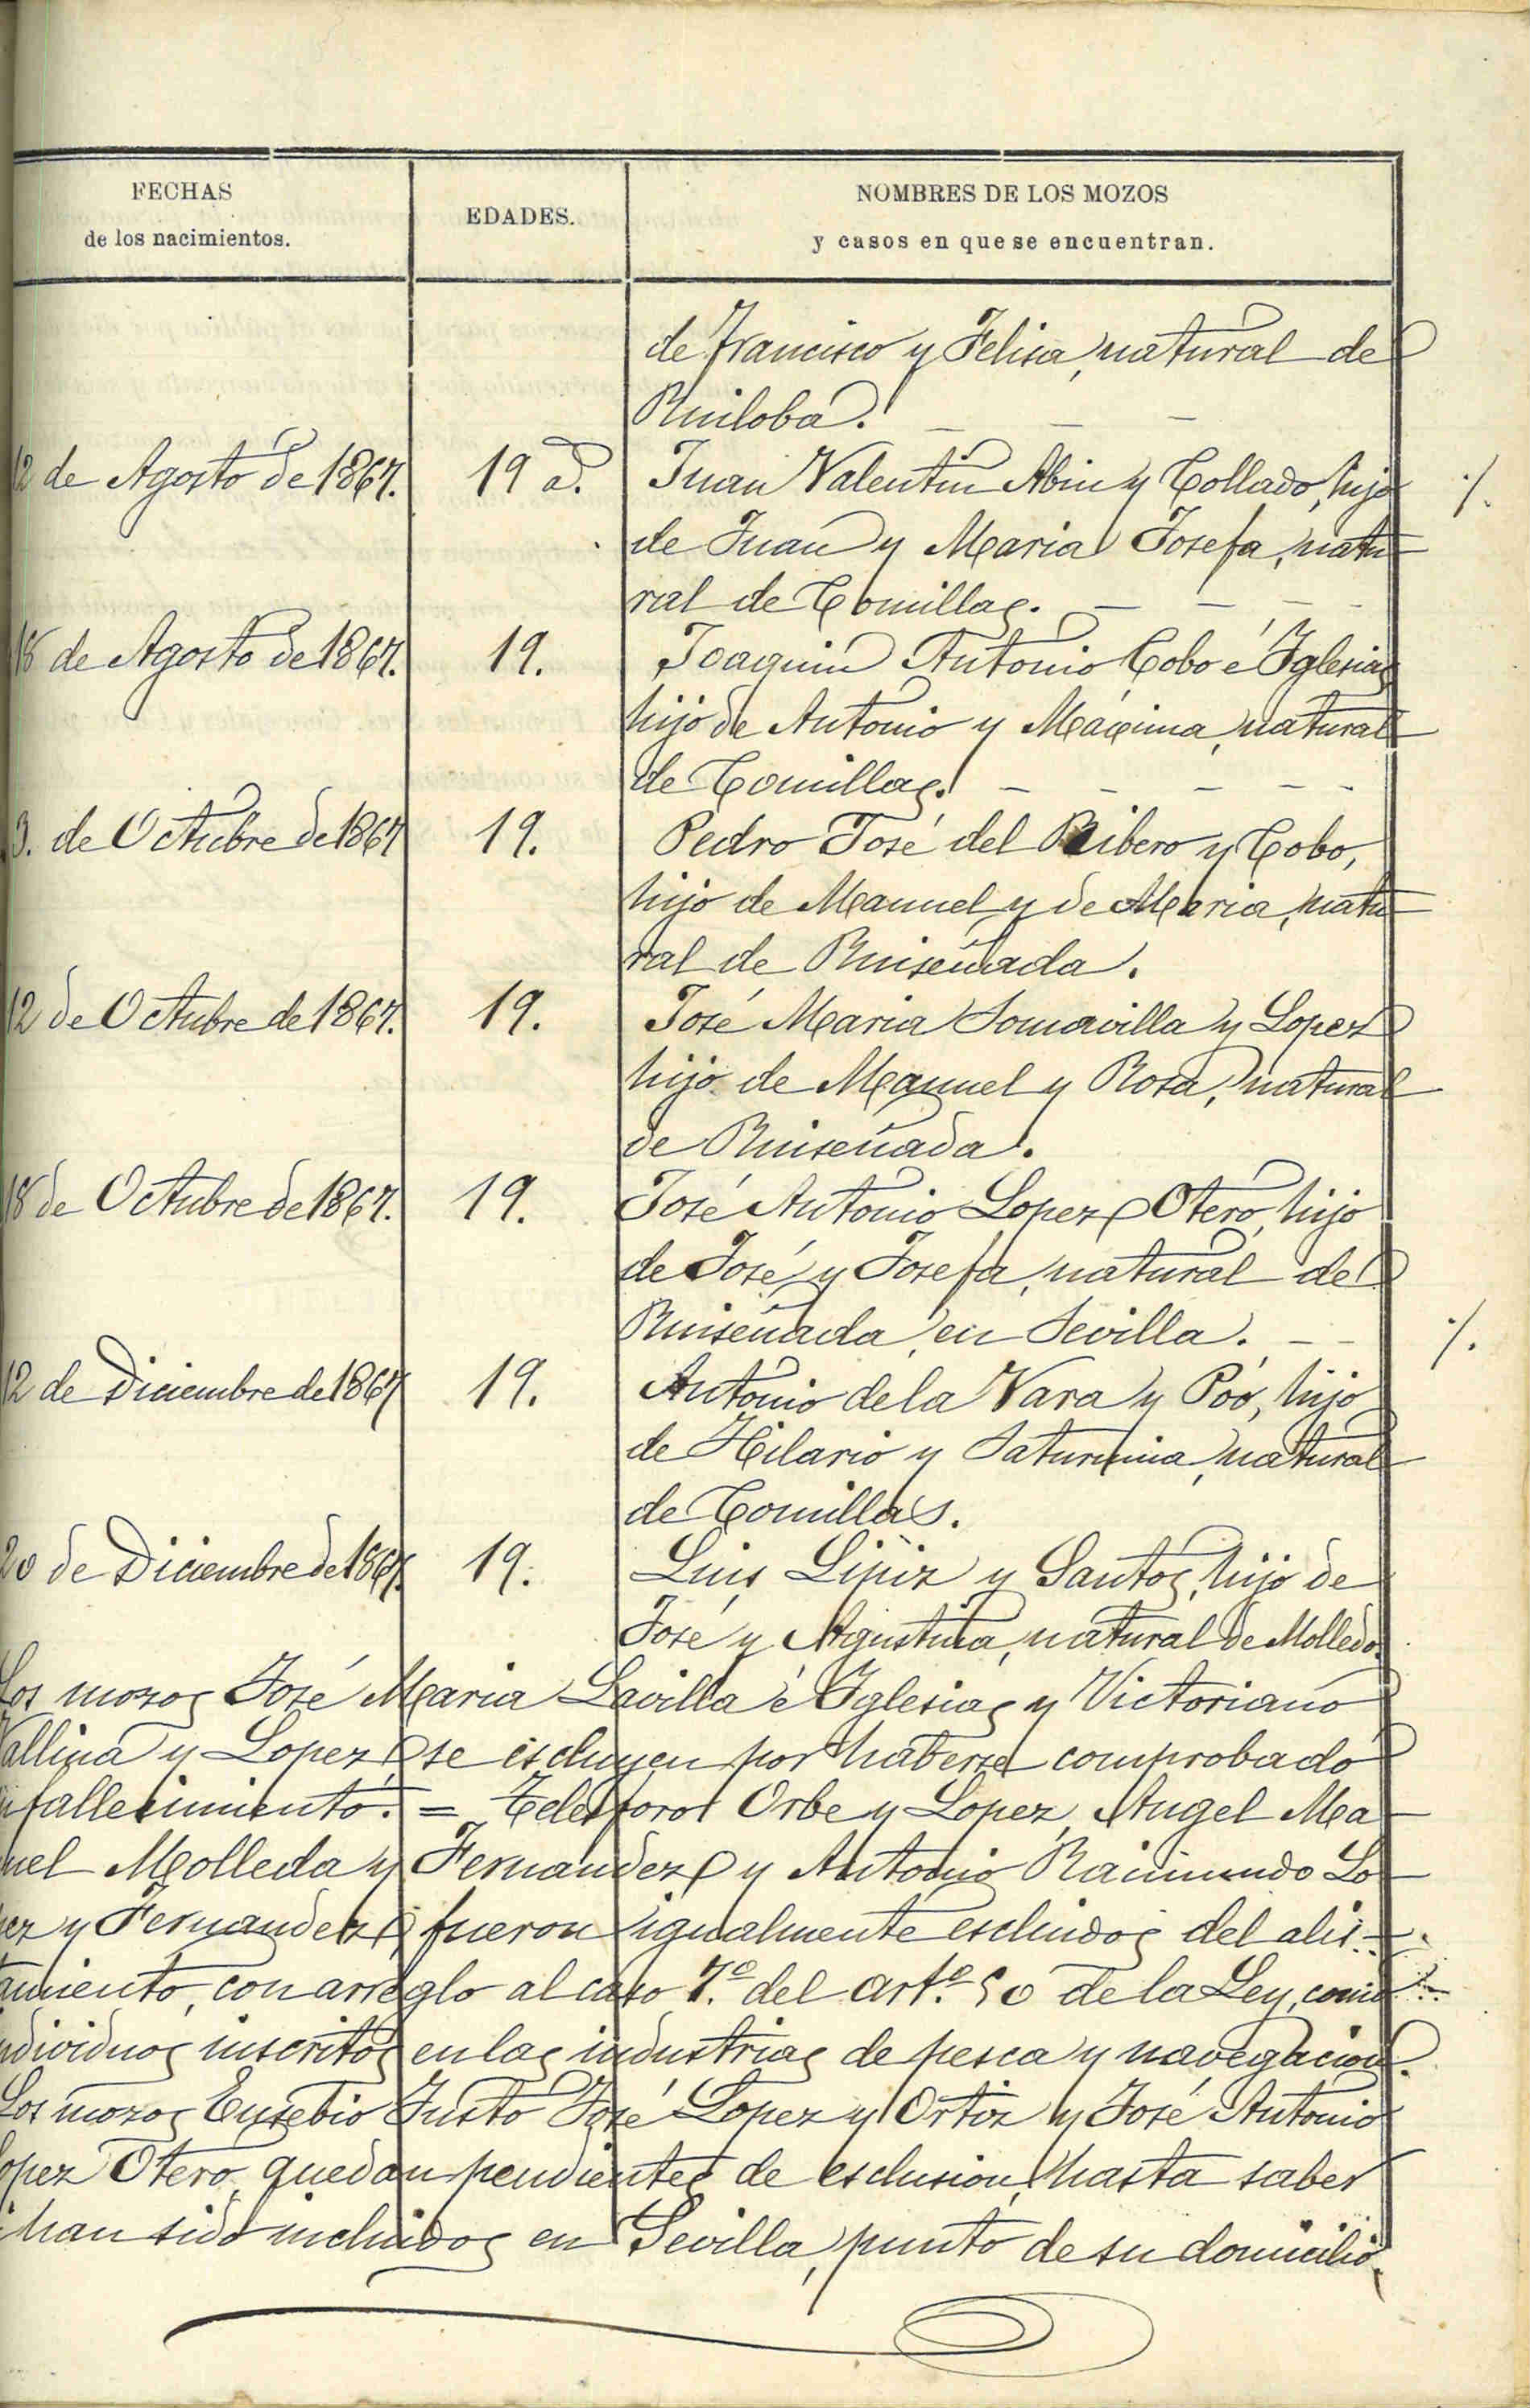 FECHAS
de los nacimientos.
EDADES.
NOMBRES DE LOS MOZOS
y casos en que se encuentran.
de Francisco y Felisa, natural de
Ruiloba.
12 de Agosto de 1867. 19 a. Juan Valentin Abin y Collado, hijo
de Juan y Maria Josefa, natu-
ral de Comillas.
18 de Agosto de 1867. 19. Joaquin Antonio Cobo é Iglesias,
hijo de Antonio y Máxima, natural
de Comillas.
3. de Octubre de 1867 19. Pedro José del Ribero y Cobo,
hijo de Manuel y de Maria, natu-
ral de Ruiseñada.
12 de Octubre de 1867. 19. José Maria Somavilla y Lopez
hijo de Manuel y Rosa, natural
de Ruiseñada.
18 de Octubre de 1867. 19. José Antonio Lopez Otero, hijo
de José y Josefa, natural de
Ruiseñada, en Sevilla.
12 de Diciembre de 1867 19. Antonio de la Vara y Póo, hijo
de Hilario y Saturnina, natural
de Comillas.
20 de Diciembre de 1867. 19. Luis y Santos, hijo de
José y Agustina, natural de Molledo.
Los mozos José Maria Lavilla é Iglesias y Victoriano
Vallina y Lopez, se escluyen por haberse comprobado
fallecimiento. = Telesforo Orbe y Lopez, Angel Ma-
nuel Molleda y Fernandez y Antonio Raimundo Lo-
pez y Fernandez, fueron igualmente escluidos del alis-
tamiento, con arreglo al caso 7.º del art.º 50 de la Ley, como
individuos inscritos en las industrias de pesca y navegacion.
Los mozos Eusebio Justo José Lopez y Ortiz y José Antonio
Lopez Otero, quedan pendientes de esclusion, hasta saber
si han sido incluidos en Sevilla, punto de su domicilio.